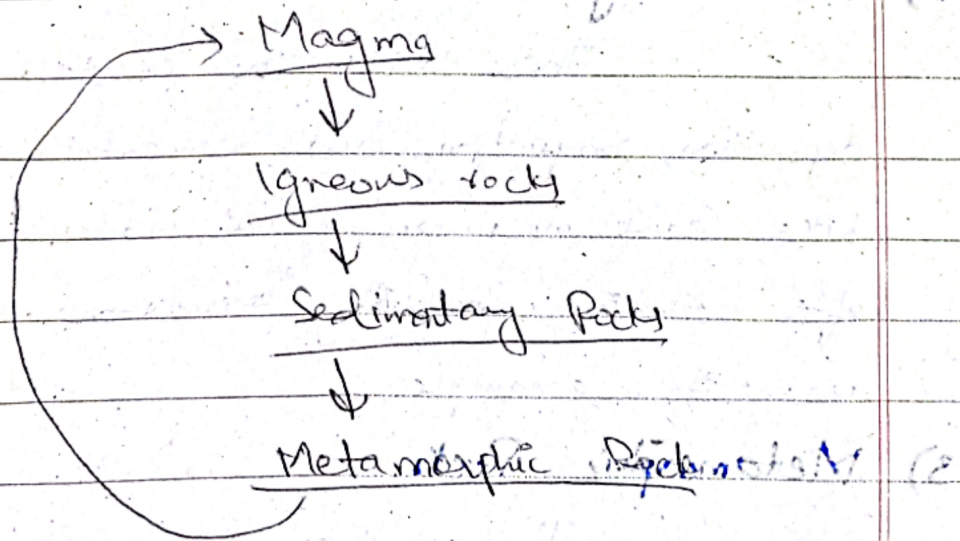 Magma
Igneous rocks
Sedimentary Rocks
Metamorphic Rock